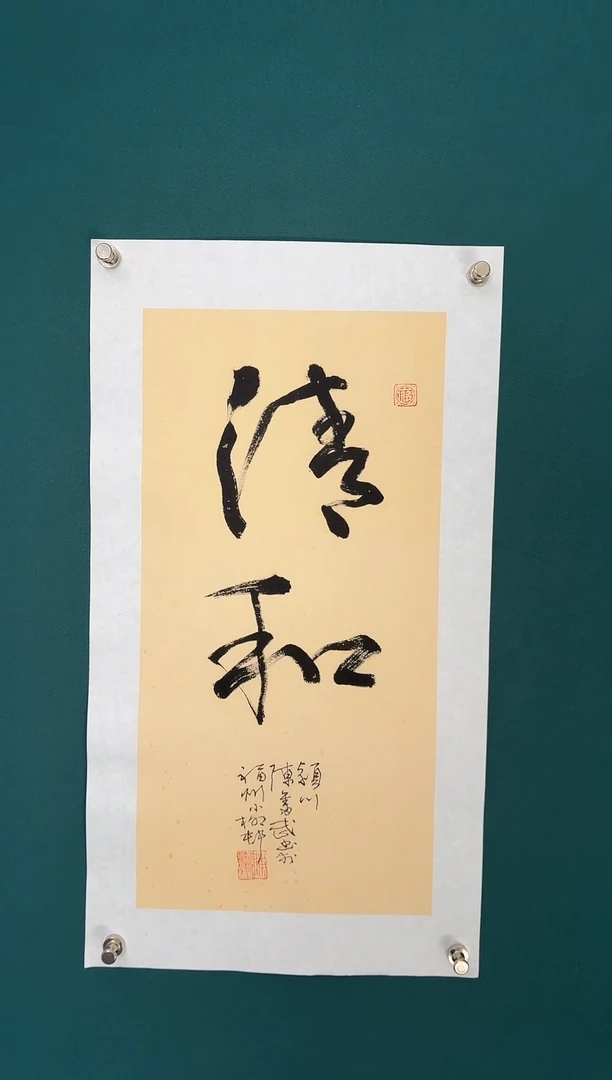 清
和
潁川
陳奮武書於
福州小柳邨